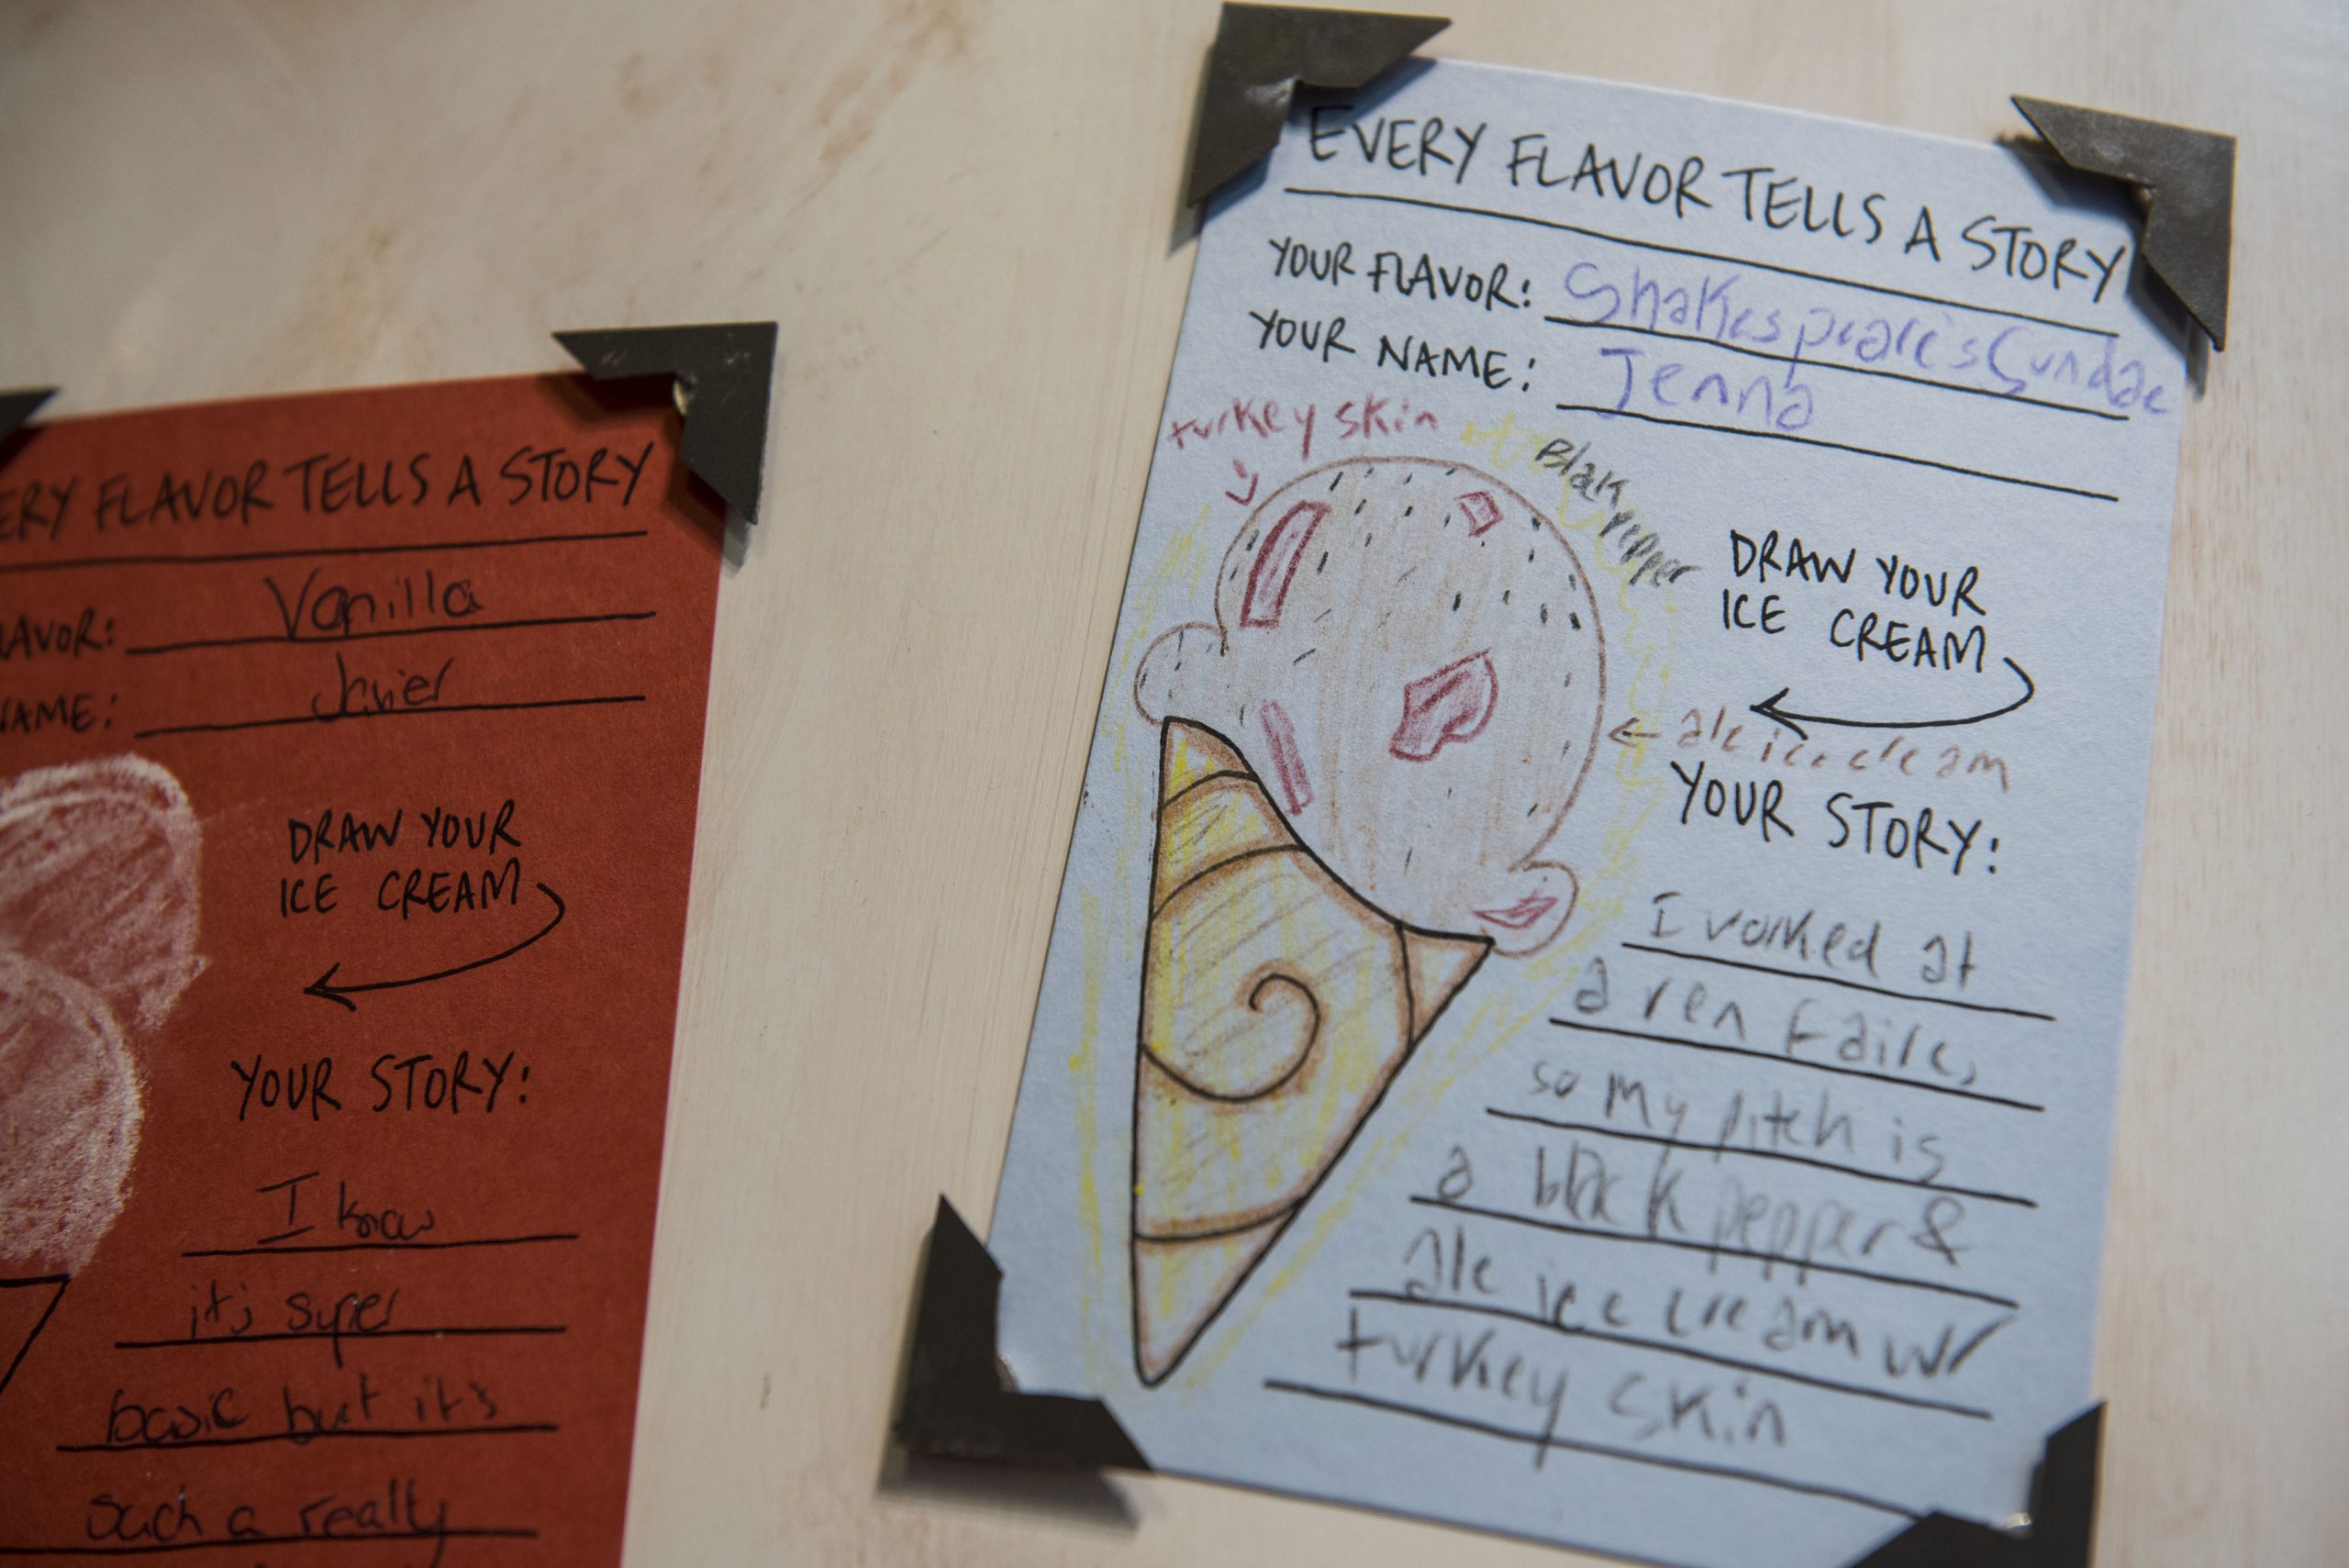 ERY FLAVOR TELLS A STORY
LAVOR: Vanilla
NAME: Javier
DRAW YOUR
ICE CREAM
YOUR STORY:
I know
it's super
basic but it's
such a really
EVERY FLAVOR TELLS A STORY
YOUR FLAVOR: Shakespeare's Sundae
YOUR NAME: Jenna
turkey skin
Blak pepper
DRAW YOUR
ICE CREAM
ale ice cream
YOUR STORY:
I worked at
a ren faire,
so my pitch is
a black pepper &
ale ice cream w/
turkey skin